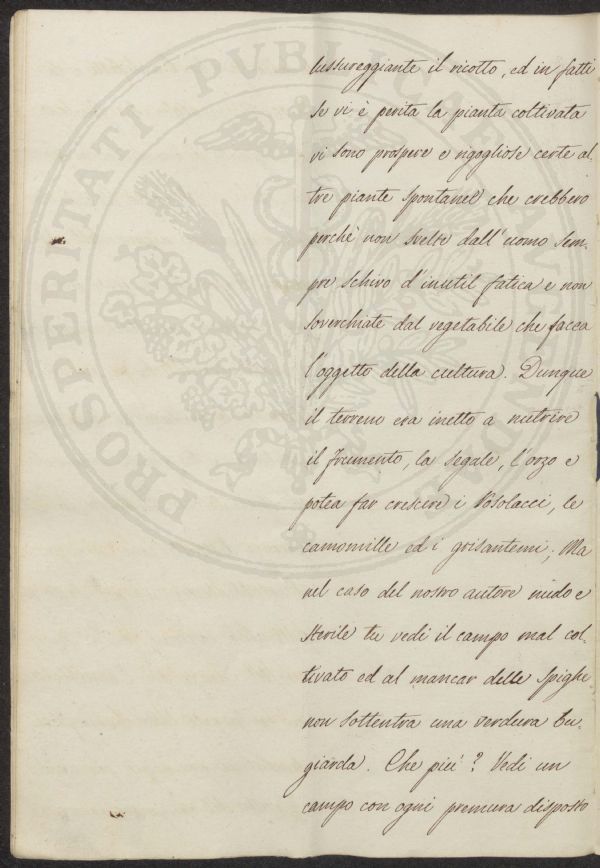 lussureggiante il ricolto, ed in fatti
se vi è perita la pianta coltivata
vi sono prospere e rigogliose certe al-
tre piante spontanee che crebbero
perchè non svelte dall'uomo sem-
pre schivo d'inutil fatica e non
soverchiate dal vegetabile che facea
l'oggetto della cultura. Dunque
il terreno era inetto a nutrire
il frumento, la segale, l'orzo e
potea far crescere i Rosolacci, le
camomille ed i grisantemi; Ma
nel caso del nostro autore nudo e
sterile tu vedi il campo mal col-
tivato ed al mancar delle spighe
non sottentra una verdura bu-
giarda. Che più? Vedi un
campo con ogni premura disposto
PROSPERITATI PUBLICAE